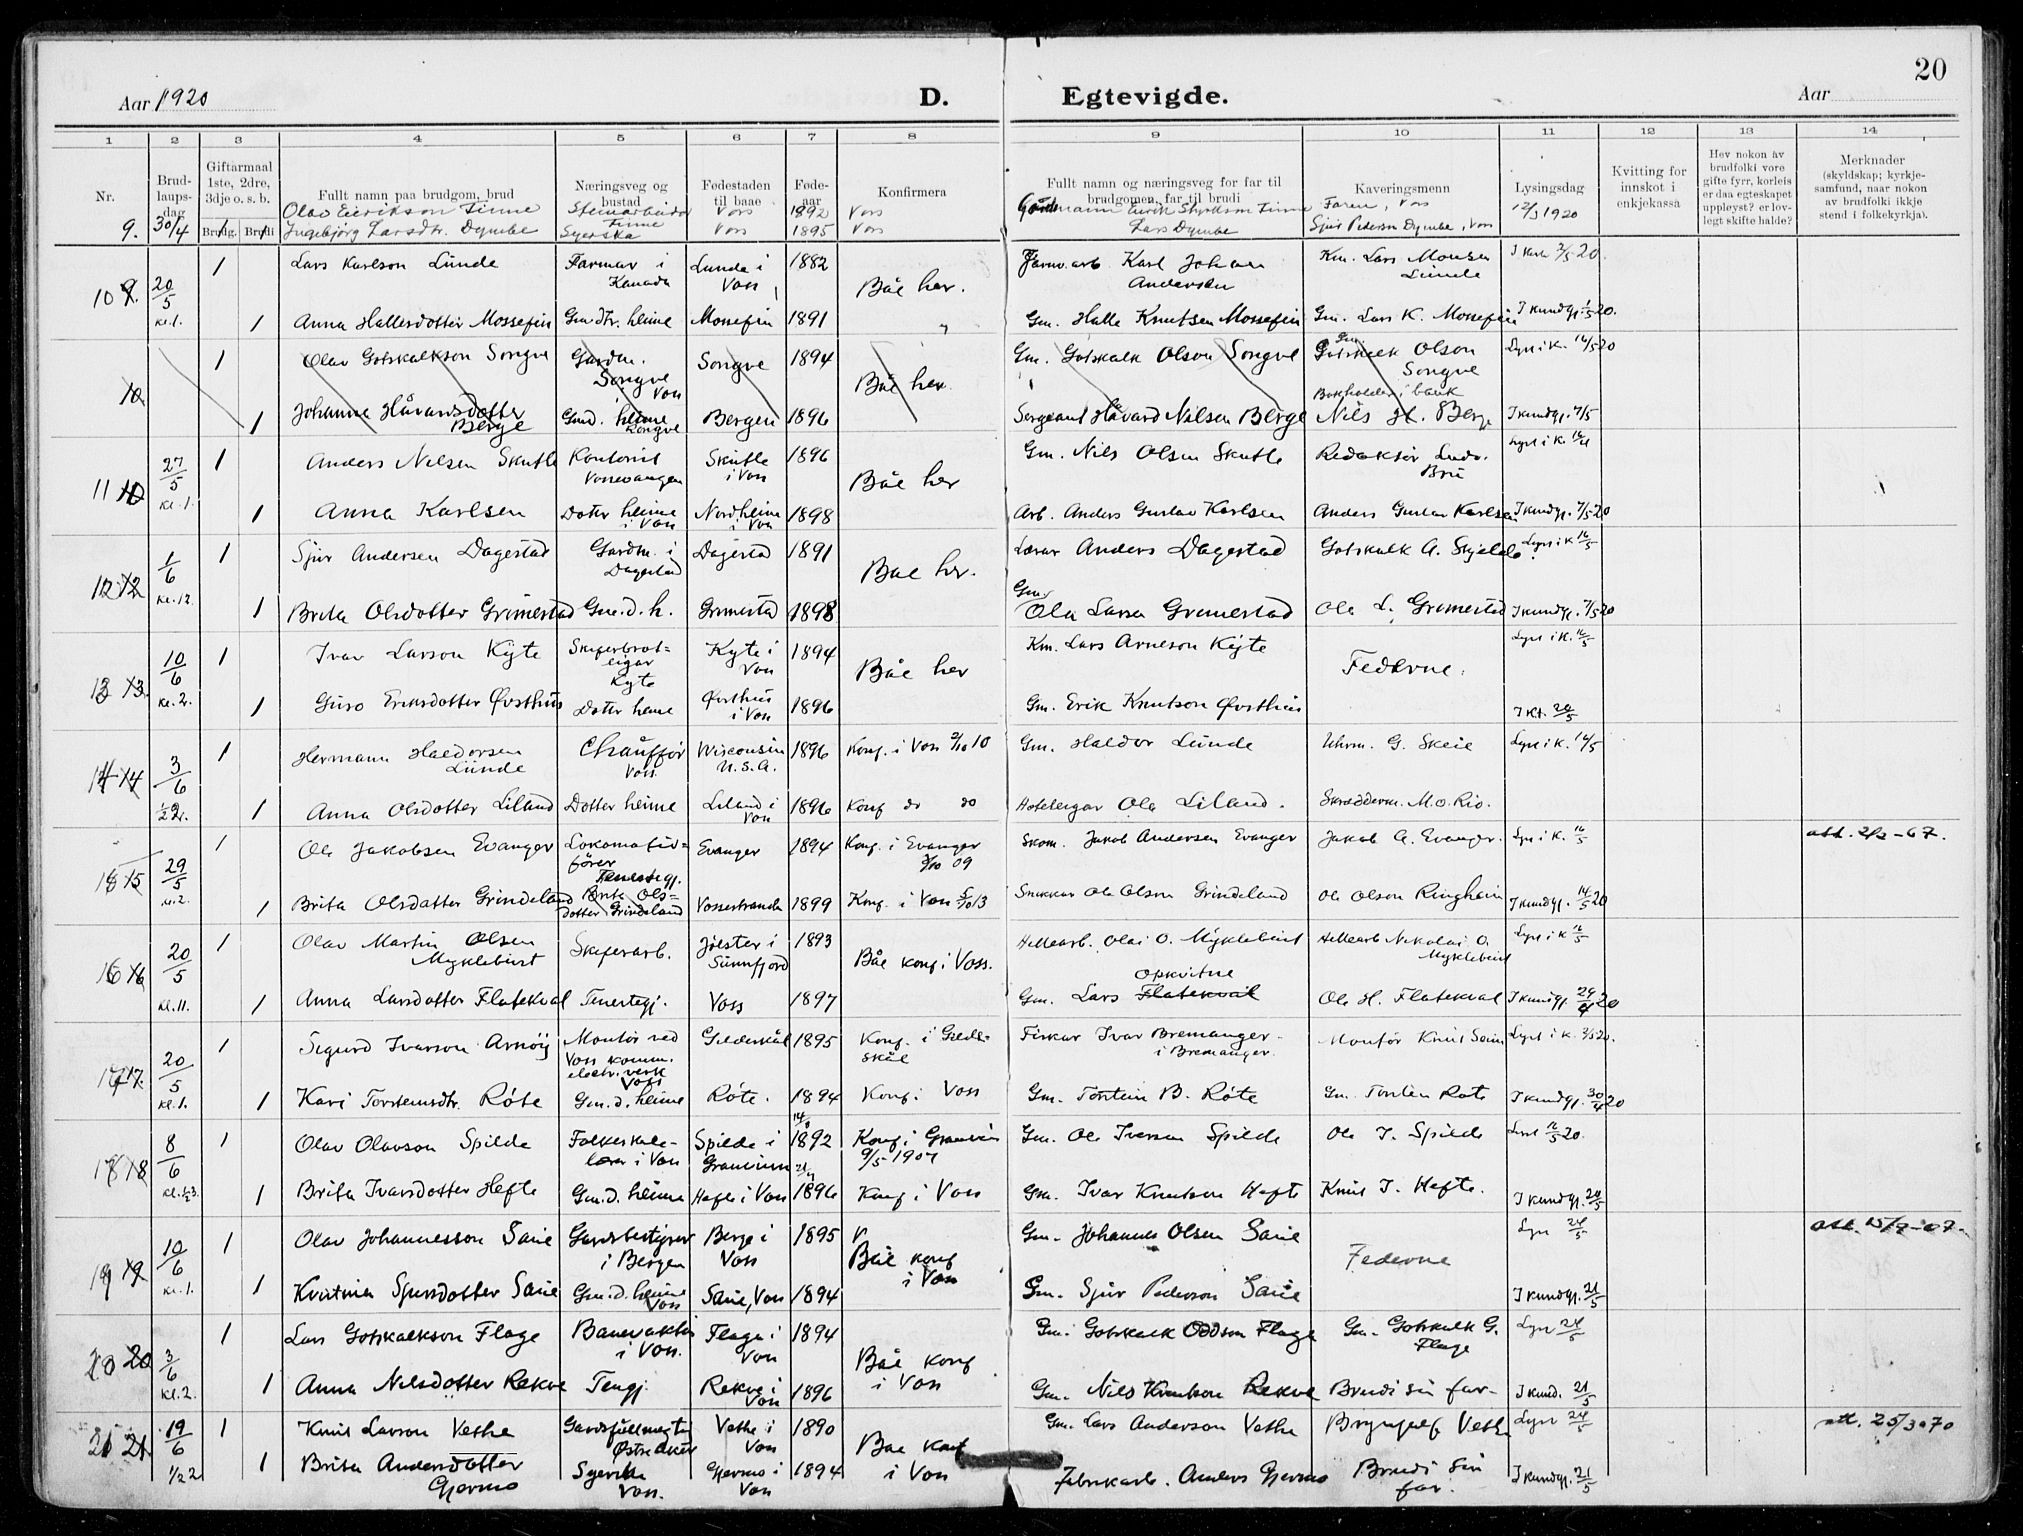 20
Aar 1920
D.
Egtevigde.
Aar
1 2 3 4 5 6 7 8 9 10 11 12 13 14
Nr.
Brud-
laups-
dag
Giftarmaal
1ste, 2dre,
3dje o. s. b.
Brudg. Brudi
Fullt namn paa brudgom, brud
Næringsveg og
bustad
Fødestaden
til baae
Føde-
aar
Konfirmera
Fullt namn og næringsveg for far til
brudgomen, far til brudi
Kaveringsmenn
Lysingsdag
Kvitting for
innskot i
enkjekassa
Hev nokon av
brudfolki vore
gifte fyrr, korleis
er daa egteskapet
uppløyst? er lov-
legt skifte halde?
Merknader
(skyldskap; kyrkje-
samfund, naar nokon
av brudfolki ikkje
stend i folkekyrkja).
9. 30/4 1 Olav Eirikson Finne Steinarbeidar Finne Voss 1892 Voss Gardmann Eirik Styrkson Finne Faren, Voss 12/3 1920
1 Ingebjørg Larsdtr. Dymbe Syerska Voss 1895 Voss Lars Dymbe Sjur Pederson Dymbe, Voss
10 20/5 kl. 1. 1 Lars Karlson Lunde Farmar i Kanada Lunde i Voss 1882 Båe her. Karl Johan Andersen Km. Lars Monsen Lunde 2/5 20.
1 Anna Hallesdotter Mossefin Gm. dtr. heime Mossefin 1891 Gm. Halle Knutsen Mossefin Gm. Lars K. Mossefin I kundgj. 1/5 20.
10 1 Olav Gotskalkson Songve Gardm. Songve Voss Songve 1894 Båe her. Gm. Gotskalk Olson Songve Gm. Gotskalk Olson Songve Lyst i K. 16/5 20
1 Johanna Håvardsdotter Berge Gmd. heime Songve Bergen 1896 Sergeant Håvard Nilsen Berge Bokholder i bank Nils H. Berge I kundgj. 7/5
11 27/5 kl. 1. 1 Anders Nilsen Skutle Kontorist Vossevangen Skutle i Voss 1896 Båe her Gm. Nils Olsen Skutle Redaktør Ludv. Brü Lyst i K.
1 Anna Karlsen Doter heime i Voss Nordheim i Voss 1898 Arb. Anders Gustav Karlsen Anders Gustav Karlsen I kundgj. 7/5 20
12 1/6 kl. 12. 1 Sjur Andersen Dagestad Gardm. i Dagestad Dagestad 1891 Båe her. Lærar Anders Dagestad Gotskalk A. Skjelde Lyst i K 16/5
1 Brita Olsdotter Grimestad Gm. d. h. Grimestad 1898 Gm. Ola Larsa Grimestad Ole L. Grimestad I kundgj. 7/5 20
13 10/6 kl. 2. 1 Ivar Larson Kyte Skiferbrot-eigar Kyte Kyte i Voss 1894 Båe her Km. Lars Arneson Kyte Federne. Lyst i K. 16/5
1 Guro Eriksdotter Øvsthus Doter heime Øvsthus i Voss 1896 Gm. Erik Knutson Øvsthus I Kt. 20/5
14 3/6 ½2. 1 Hermann Haldorsen Lunde Chauffør Voss. Wisconsin U.S.A. 1896 Konf. i Voss 2/10 10 Gm. Haldor Lunde Uhrm. G. Skeie Lyst i K. 16/5
1 Anna Olsdotter Liland Dotter heime Liland i Voss 1896 Konf do do Hoteleigar Ola Liland. Skræderm. M. O. Rio.
15 29/5 kl. 2. 1 Ole Jakobsen Evanger Lokomotiv-fører Evanger 1894 Konf. i Evanger 3/10 09 Skom. Jakob Andersen Evanger Jakob A. Evanger. Lys i K. 16/5 att. 2/2-67.
1 Brita Olsdatter Grindeland Tenestegj. Brita Ols-dotter Grindeland Vossestranda 1899 Konf. i Voss 5/10 13 Snikkar Ole Olson Grindeland Ole Olson Ringheim I kundgj. 14/5 20
16 20/5 kl. 11. 1 Olav Martin Olsen Myklebust Skiferarb. Jølster i Sunnfjord 1893 Båe konf i Voss. Hellearb. Olai O. Myklebust Hellearb Nikolai O. Myklebust Lyst i K 16/5
1 Anna Larsdotter Flatekval Tenestegj. Voss 1897 Gm. Lars Flatekval Opkvitne Ole H. Flatekval I kundgj. 29/4 20
17 20/5 kl. 1. 1 Sigurd Ivarson Arnøy Montør ved Voss komm. electr. verk Voss Gildeskål 1895 Konf. i Gilde-skål Fiskar Ivar Bremanger i Bremanger. Montør Knut Seim Lyst i K. 2/5 20.
1 Kari Torsteinsdtr. Røte Gm. d. heime Røte. 1894 Konf. i Voss Gm. Torstein B. Røte Gm. Torstein Røte I kundgj. 30/4 20
18 8/6 kl. ½3. 1 Olav Olavson Spilde Folkeskule-lærar i Voss Spilde i Granvin 1892 Konf i Granvin 9/5 1907 Gm. Ole Iversen Spilde Ole I. Spilde Lyst 16/5 20.
1 Brita Ivarsdotter Hefte Gm. d. heime Hefte i Voss 1896 Konf i Voss Gm. Ivar Knutson Hefte Knut I. Hefte. I kundgj. 20/5
19 10/6 kl. 1. 1 Olav Johannesson Saue Gardsbestyrer i Bergen Berge i Voss 1895 Båe konf i Voss Gm. Johannes Olsen Saue Federne Lyst 24/5 att. 15/7-67.
1 Kristina Sjursdotter Saue Gm. d. heime Voss Saue, Voss 1894 Gm. Sjur Pederson Saue I kundgj. 21/5
20 3/6 kl. 2. 1 Lars Gotskalkson Flage Banevaktar i Voss. Flage i Voss 1894 Båe konf i Voss Gm. Gotskalk Oddson Flage Gm. Gotskalk G. Flage Lyst 24/5
1 Anna Nilsdotter Rekve Tengj. Rekve i Voss 1896 Gm. Nils Knutson Rekve Brudi sin far. I kund. 21/5
21 19/6 ½2 1 Knut Larson Vethe Gardsfullmektig Østre Aker Vethe i Voss 1890 Båe konf i Voss Gm. Lars Anderson Vethe Brynjulf Vethe Lyst 24/5 att. 25/3 70
1 Brita Andersdotter Gjerme Syerska Voss. Gjerme i Voss 1894 Fabrikarb. Anders Gjerme Brudi sin far. I kundgj. 21/5